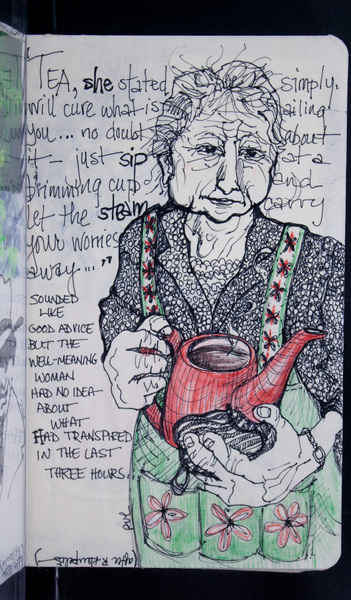 TEA, she stated simply.
will cure what is ailing
you... no doubt about
it - just sip at a
brimming cup and
let the steam carry
your worries
away..."
SOUNDED
LIKE
GOOD ADVICE
BUT THE
WELL-MEANING
WOMAN
HAD NO IDEA-
ABOUT
WHAT
HAD TRANSPIRED
IN THE LAST
THREE HOURS...